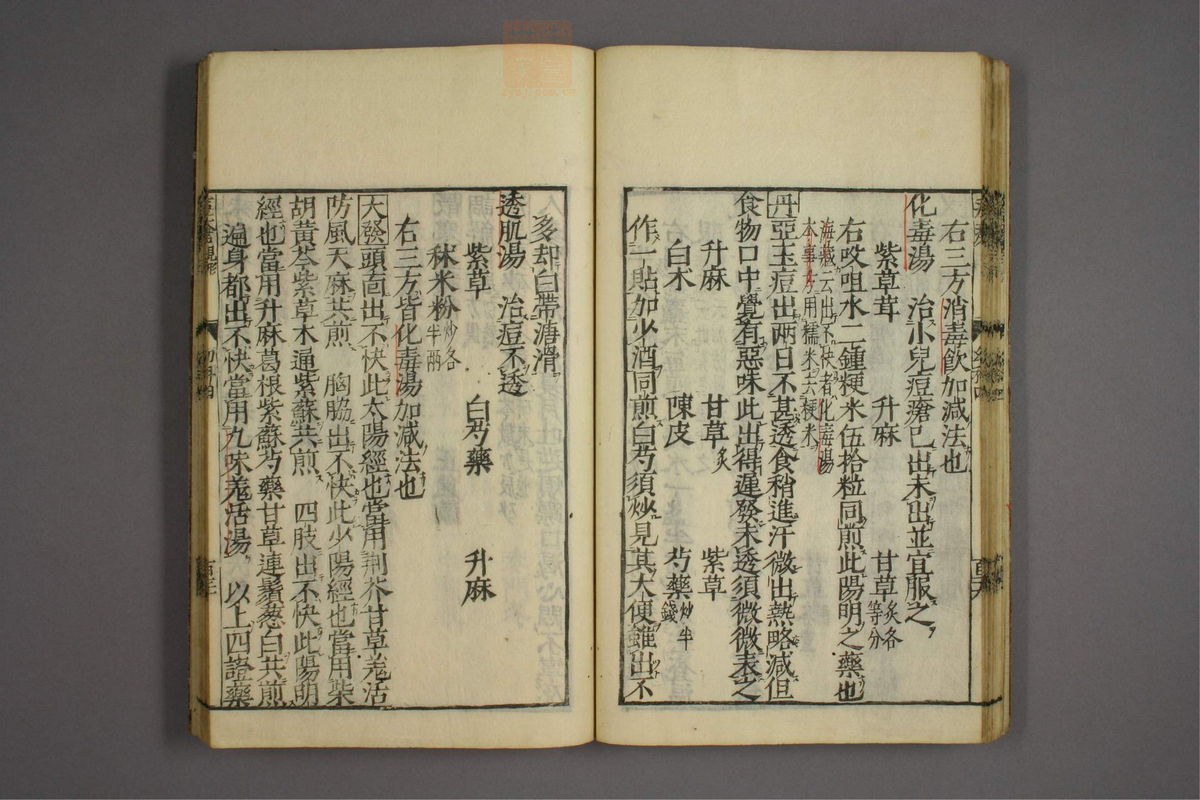 右三方消毒飲加減法也
化毒湯　治小兒痘瘡已出未出並宜服之
紫草茸　升麻　甘草炙各等分
右㕮咀水二鍾粳米伍拾粒同煎此陽明之藥也
海藏云出不快者化毒湯
本事方用糯米去粳米
丹亞玉痘出兩日不甚透食稍進汗微出熱略減但
食物口中覺有惡味此出得遲發未透須微微表之
升麻　甘草炙　紫草
白朮　陳皮　芍藥炒半錢
作一貼加少酒同煎白芍須炒見其大便雖出不
多却白帶溏滑
透肌湯　治痘不透
紫草　白芍藥　升麻
秫米粉炒各半兩
右三方皆化毒湯加減法也
大發頭面出不快此太陽經也當用荆芥甘草羗活
防風天麻共煎　胸脇出不快此少陽經也當用柴
胡黄芩紫草木通紫蘇共煎　四肢出不快此陽明
經也當用升麻葛根紫蘇芍藥甘草連鬚葱白共煎
遍身都出不快當用九味羗活湯　以上四證藥